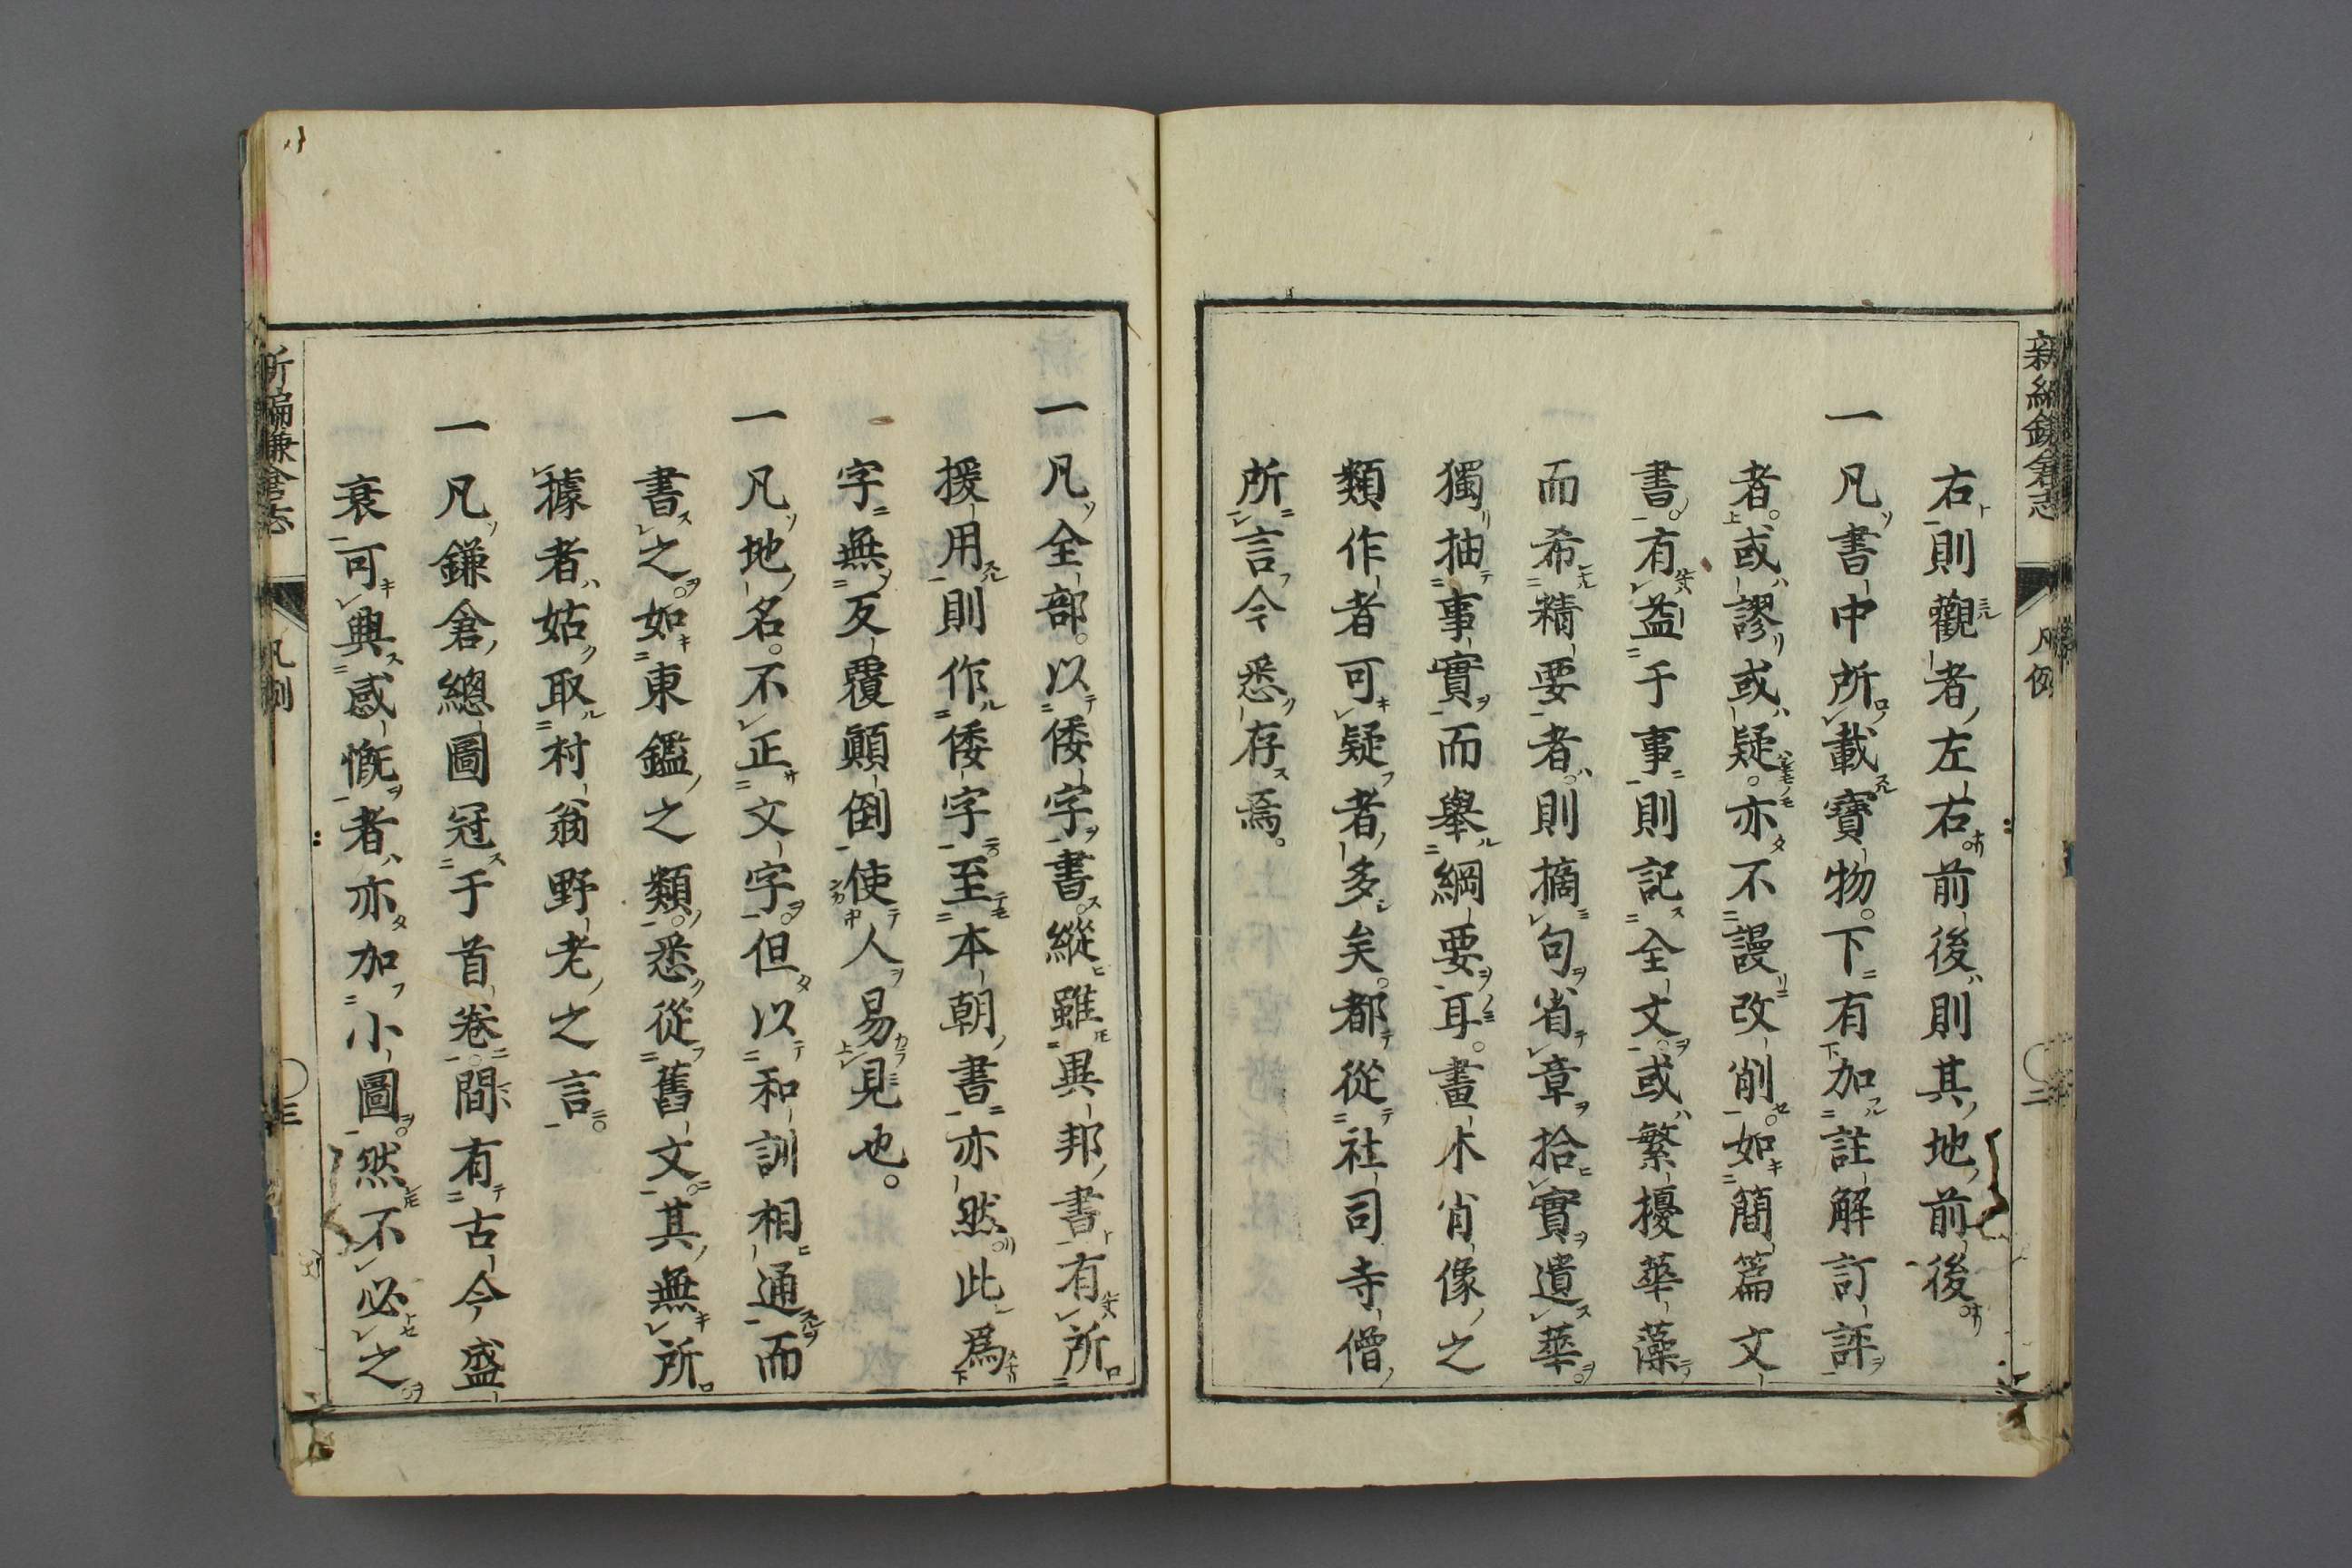 新編鎌倉志 凡例 二
右則觀者左右前後則其地前後
一凡書中所載寶物。下有加註解訂評
者。或謬或疑。亦不謾改削。如簡篇文
書。有益于事則記全文。或繁擾華藻
而希精要者。則摘句省章拾實遺華。
獨抽事實而舉綱要耳。畫木肖像之
類作者可疑者多矣。都從社司寺僧
所言今悉存焉。
一凡全部。以倭字書。縱雖異邦書有所
援用則作倭字。至本朝書亦然。此爲
字無反覆顚倒使人易見也。
一凡地名。不正文字。但以和訓相通而
書之。如東鑑之類。悉從舊文。其無所
據者姑取村翁野老之言。
一凡鎌倉總圖冠于首卷。間有古今盛
衰可興感慨者亦加小圖。然不必之。
新編鎌倉志 凡例 三